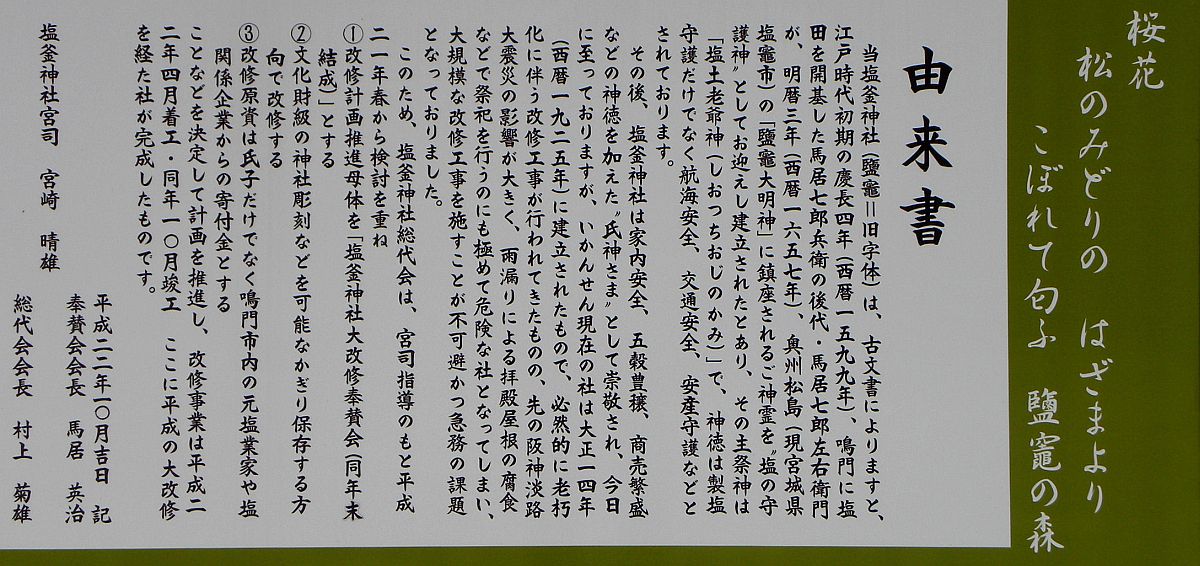 桜花
松のみどりの　はざまより
こぼれて匂ふ　鹽竈の森
由来書
当塩釜神社（鹽竈＝旧字体）は、古文書によりますと、
江戸時代初期の慶長四年（西暦一五九九年）、鳴門に塩
田を開基した馬居七郎兵衛の後代・馬居七郎左右衛門
が、明暦三年（西暦一六五七年）、奥州松島（現宮城県
塩竈市）の「鹽竈大明神」に鎮座されるご神霊を〝塩の守
護神〟としてお迎えし建立されたとあり、その主祭神は
「塩土老爺神（しおつちおじのかみ）」で、神徳は製塩
守護だけでなく航海安全、交通安全、安産守護などと
されております。
その後、塩釜神社は家内安全、五穀豊穣、商売繁盛
などの神徳を加えた〝氏神さま〟として崇敬され、今日
に至っておりますが、いかんせん現在の社は大正一四年
（西暦一九二五年）に建立されたもので、必然的に老朽
化に伴う改修工事が行われてきたものの、先の阪神淡路
大震災の影響が大きく、雨漏りによる拝殿屋根の腐食
などで祭祀を行うのにも極めて危険な社となってしまい、
大規模な改修工事を施すことが不可避かつ急務の課題
となっておりました。
このため、塩釜神社総代会は、宮司指導のもと平成
二一年春から検討を重ね
①改修計画推進母体を「塩釜神社大改修奉賛会（同年末
結成）」とする
②文化財級の神社彫刻などを可能なかぎり保存する方
向で改修する
③改修原資は氏子だけでなく鳴門市内の元塩業家や塩
関係企業からの寄付金とする
ことなどを決定して計画を推進し、改修事業は平成二
二年四月着工・同年一〇月竣工　ここに平成の大改修
を経た社が完成したものです。
平成二二年一〇月吉日　記
塩釜神社宮司　宮崎　晴雄
奉賛会会長　馬居　英治
総代会会長　村上　菊雄